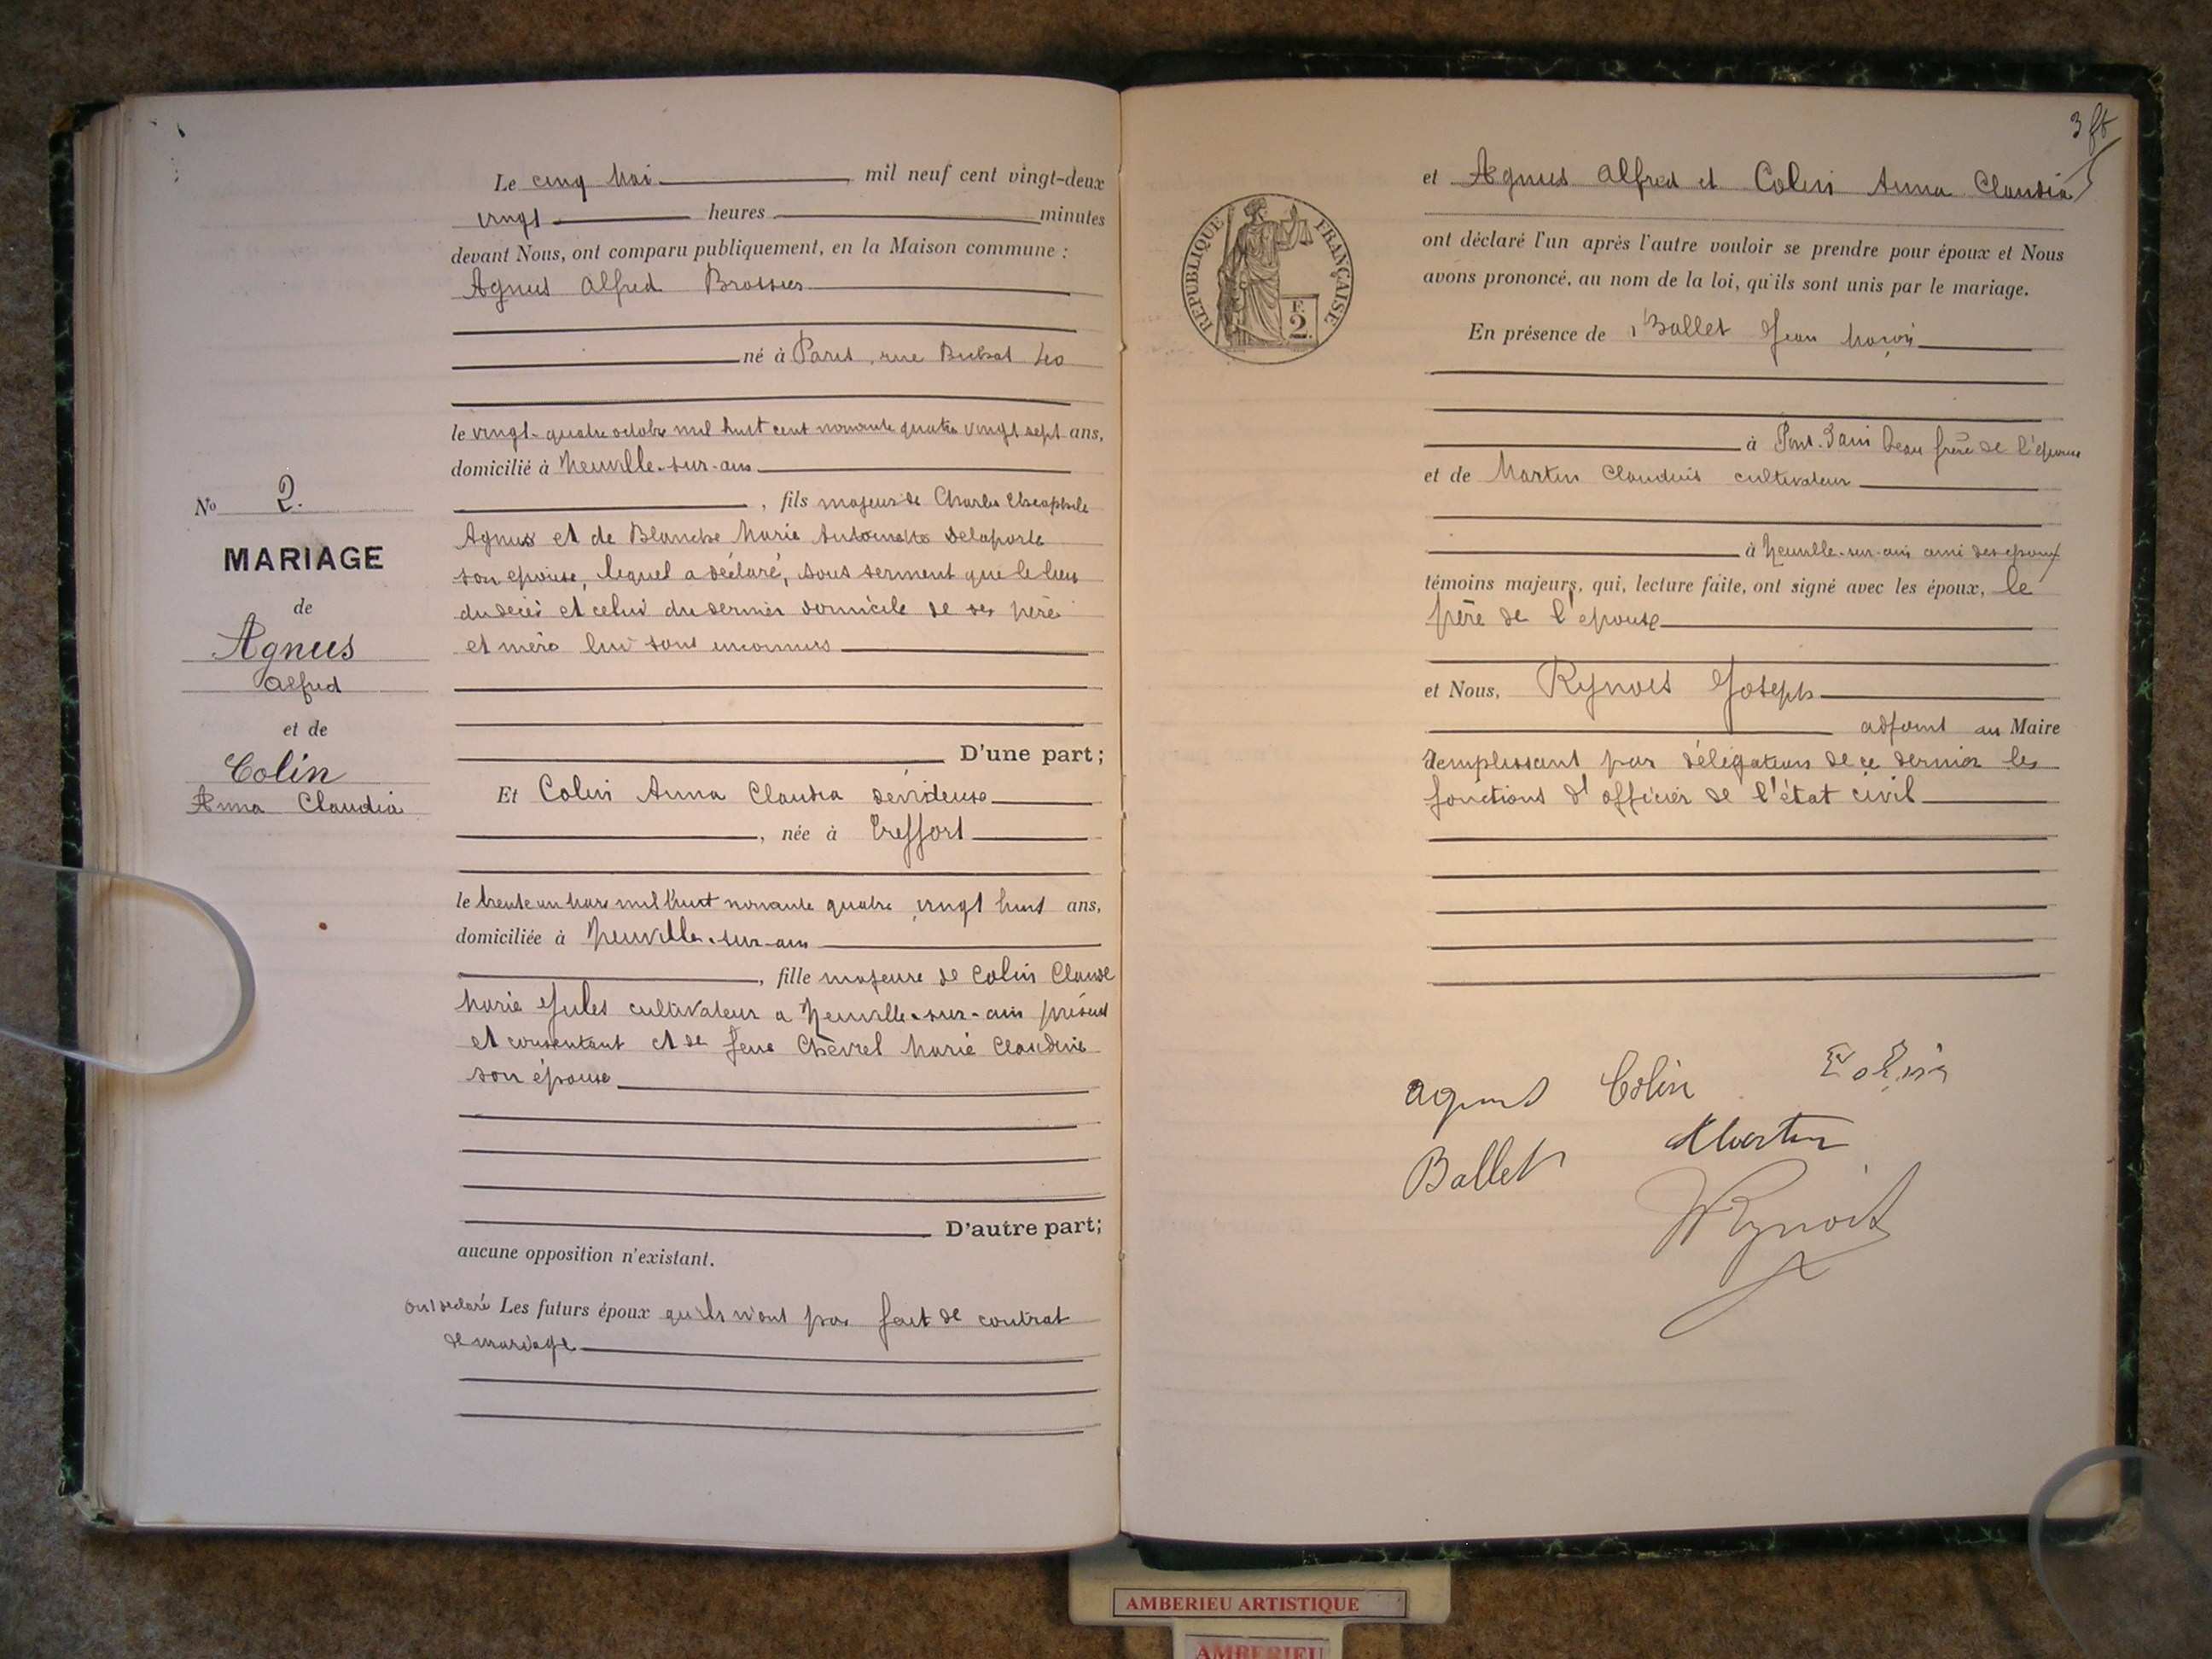 Le cinq Mai mil neuf cent vingt-deux
vingt heures minutes
devant Nous, ont comparu publiquement, en la Maison commune :
Agnus Alfred Brossier
né à Paris, rue Bichat
le vingt-quatre octobre mil huit cent nonante quatre vingt sept ans,
domicilié à Neuville-sur-ain
No 2.
, fils majeur de Charles Théophile
MARIAGE
de
Agnus
Alfred
et de
Colin
Anna Claudia
Agnus et de Blanche Marie Antoinette Delaporte
son épouse, lequel a déclaré, sous serment que le lieu
du décès et celui du dernier domicile de ses père
et mère lui sont inconnus
D'une part;
Et Colin Anna Claudia dévideuse
, née à Treffort
le trente un Mars mil huit nonante quatre vingt huit ans,
domiciliée à Neuville-sur-ain
, fille majeure de Colin Claude
Marie Jules cultivateur a Neuville-sur-ain présent
et consentant et de feue Chevrel Marie Claudine
son épouse
D'autre part;
aucune opposition n'existant.
ont déclaré Les futurs époux qu'ils n'ont pas fait de contrat
de mariage
REPUBLIQUE FRANÇAISE
F.
2.
et Agnus Alfred et Colin Anna Claudia
ont déclaré l'un après l'autre vouloir se prendre pour époux et Nous
avons prononcé, au nom de la loi, qu'ils sont unis par le mariage.
En présence de Ballet Jean Maçon
à Pont-d'ain beau frère de l'épouse
et de Martin Claudius cultivateur
à Neuville-sur-ain ami des époux
témoins majeurs, qui, lecture faite, ont signé avec les époux, le
père de l'épouse
et Nous, Rynois Joseph
adjoint au Maire
Remplissant par délégation de ce dernier les
fonctions d'officier de l'état civil
agnus Colin Colin
Ballet Martin
Rynois
AMBERIEU ARTISTIQUE
AMBERIEU